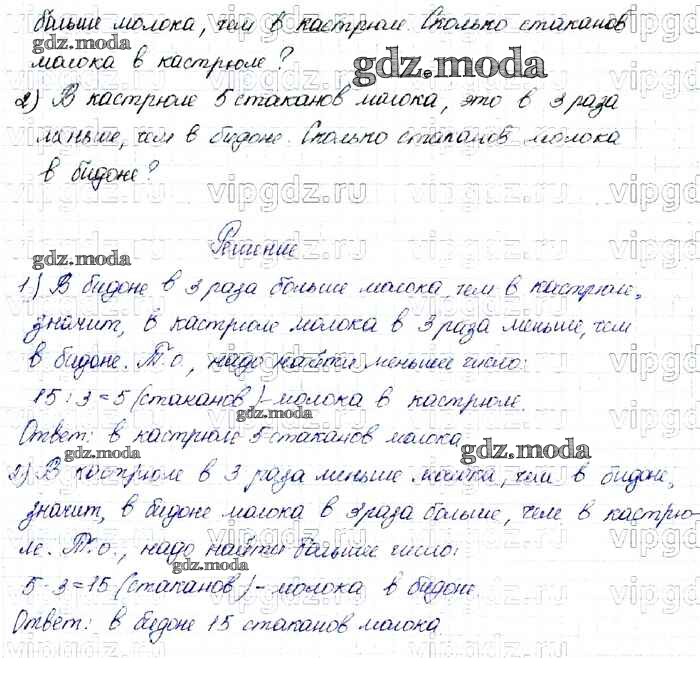 больше молока, чем в кастрюле. Сколько стаканов
молока в кастрюле?
gdz.moda
2) В кастрюле 5 стаканов молока, это в 3 раза
меньше, чем в бидоне. Сколько стаканов молока
в бидоне?
vipgdz.ru
Решение
gdz.moda
1) В бидоне в 3 раза больше молока, чем в кастрюле,
значит, в кастрюле молока в 3 раза меньше, чем
в бидоне. Т.о., надо найти меньшее число:
15 : 3 = 5 (стаканов) - молока в кастрюле.
gdz.moda
Ответ: в кастрюле 5 стаканов молока
gdz.moda
2) В кастрюле в 3 раза меньше молока, чем в бидоне,
gdz.moda
значит, в бидоне молока в 3 раза больше, чем в кастрю-
ле. Т.о., надо найти большее число:
gdz.moda
5 · 3 = 15 (стаканов) - молока в бидоне.
Ответ: в бидоне 15 стаканов молока.